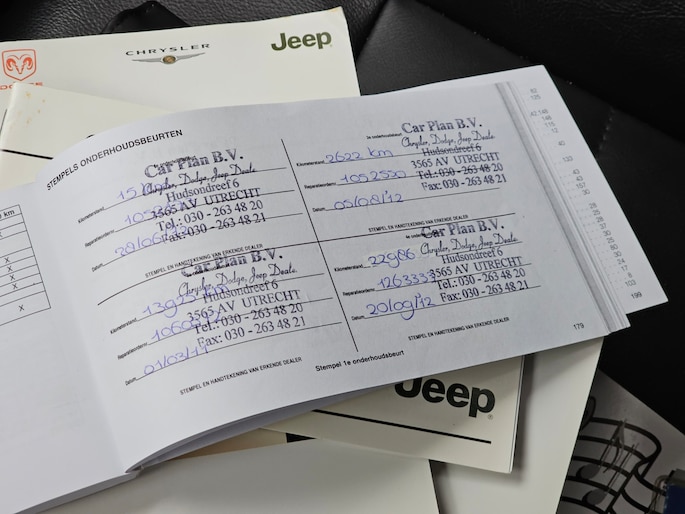 DODGE
CHRYSLER
Jeep
STEMPELS ONDERHOUDSBEURTEN
Car Plan B.V.
Chrysler, Dodge, Jeep Deale.
Hudsondreef 6
3565 AV UTRECHT
Tel.: 030 - 263 48 20
Fax: 030 - 263 48 21
Kilometerstand
Reparatieordernr.
Datum
STEMPEL EN HANDTEKENING VAN ERKENDE DEALER
3e onderhoudsbeurt
Car Plan B.V.
Chrysler, Dodge, Jeep Deale.
Hudsondreef 6
3565 AV UTRECHT
Tel.: 030 - 263 48 20
Fax: 030 - 263 48 21
Kilometerstand 2622 km
Reparatieordernr. 1052520
Datum 05/08/12
STEMPEL EN HANDTEKENING VAN ERKENDE DEALER
Car Plan B.V.
Chrysler, Dodge, Jeep Deale.
Hudsondreef 6
3565 AV UTRECHT
Tel.: 030 - 263 48 20
Fax: 030 - 263 48 21
Kilometerstand
Reparatieordernr.
Datum
STEMPEL EN HANDTEKENING VAN ERKENDE DEALER
Car Plan B.V.
Chrysler, Dodge, Jeep Deale.
Hudsondreef 6
3565 AV UTRECHT
Tel.: 030 - 263 48 20
Fax: 030 - 263 48 21
Kilometerstand 22986
Reparatieordernr.
Datum 20/09/12
STEMPEL EN HANDTEKENING VAN ERKENDE DEALER
Stempel 1e onderhoudsbeurt
179
km
X
X
X
X
X
199
Jeep